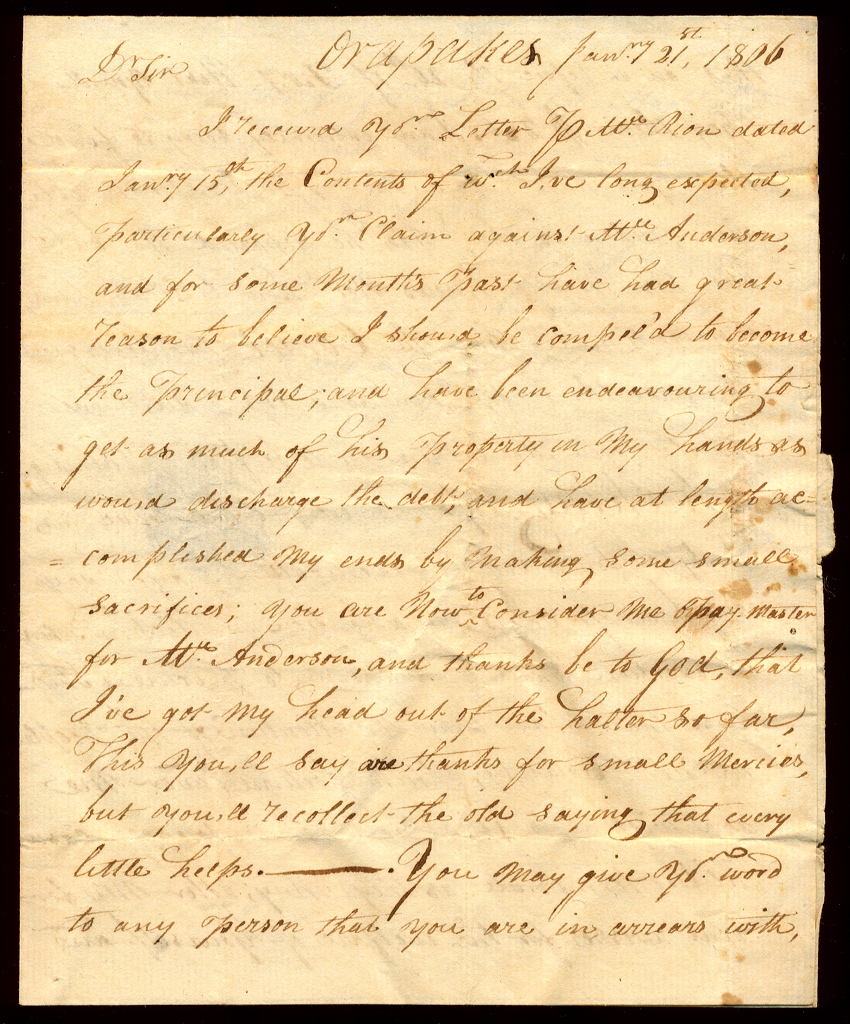 Orapakes Janry 21st, 1806
Dr Sir
I receiv'd Yor Letter P Mr. Rion dated
Janry 15th, the Contents of wch I've long expected,
Particularly Yor Claim against Mr. Anderson,
and for some Months Past have had great
reason to believe I shou'd be compel'd to become
the Principal; and have been endeavouring to
get as much of his Property in My hands as
wou'd discharge the debt, and have at length ac=
=complished My ends by Making some small
Sacrifices; You are Now to Consider Me Pay Master
for Mr. Anderson, and thanks be to God, that
I've got My head out of the halter so far,
This You'll say are thanks for small Mercies,
but You'll recollect the old saying that every
little helps. ——— . You May give Yor word
to any Person that You are in arrears with,